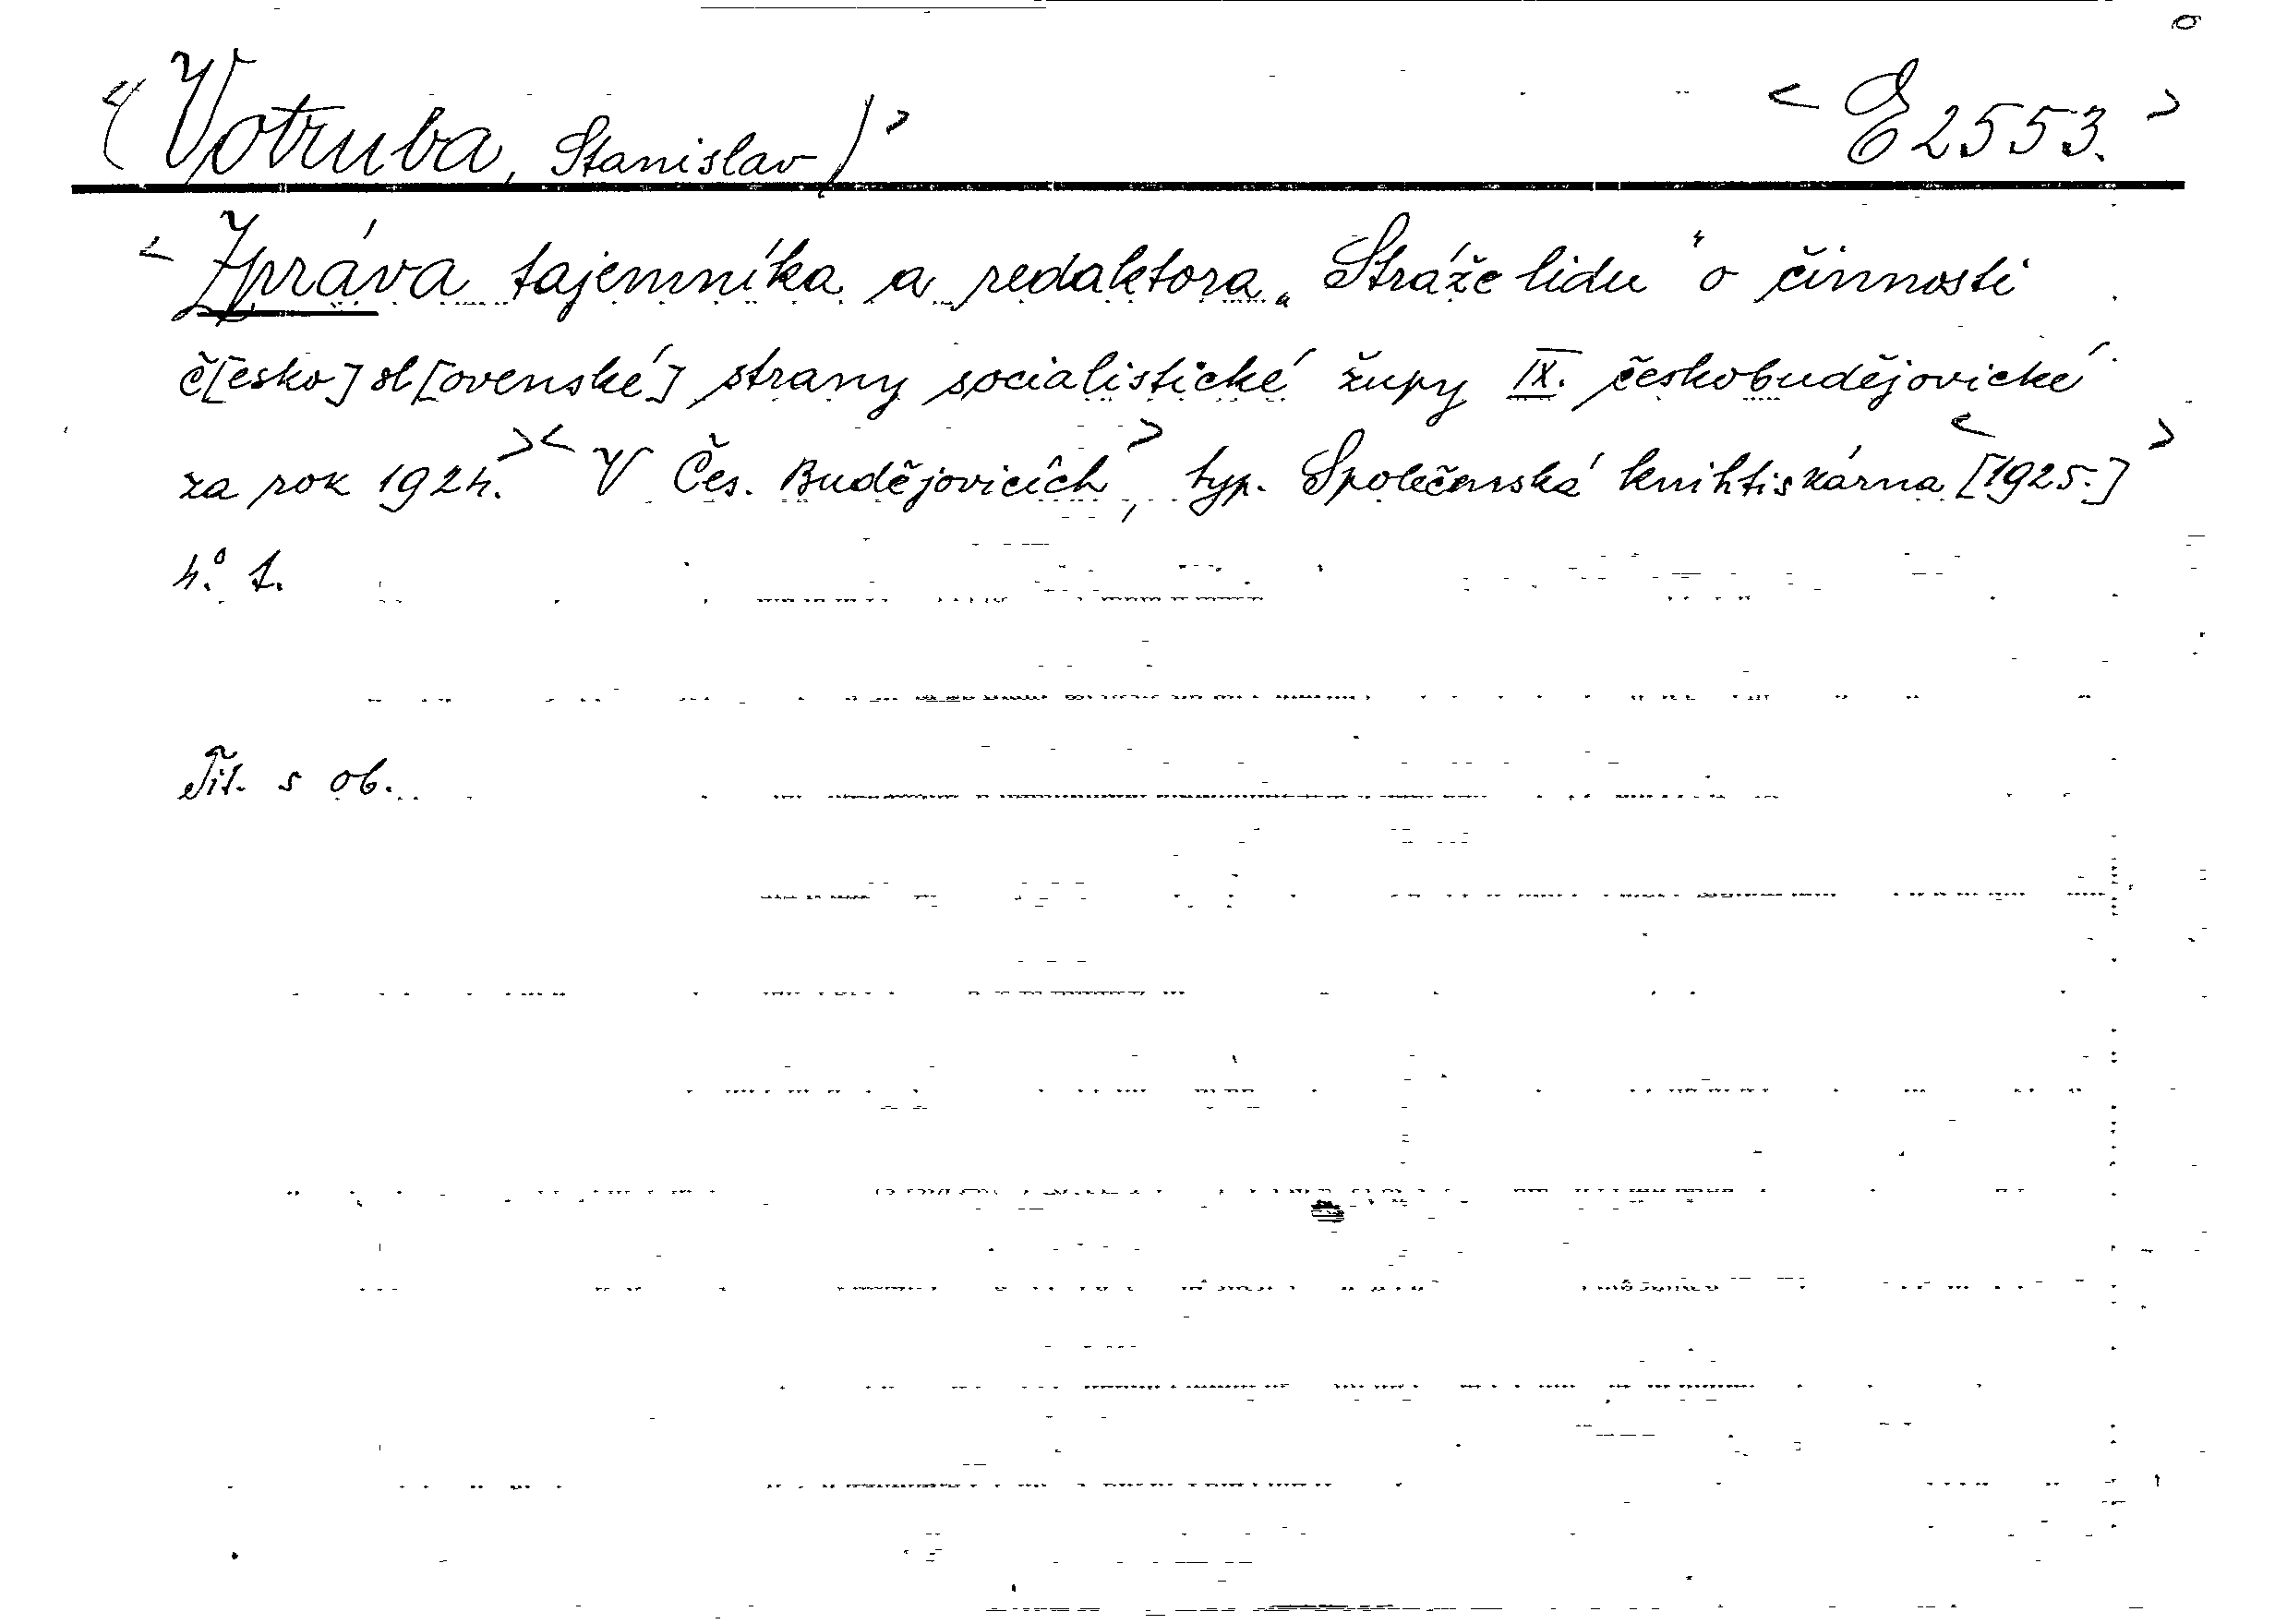 <(Votruba, Stanislav)> <E 2553.>
<Zpráva tajemníka a redaktora „Stráže lidu“ o činnosti
č[esko]sl[ovenské] strany socialistické župy IX. českobudějovické
za rok 1924.> <V Čes. Budějovicích>, typ. Společenská knihtiskárna <[1925.]>
4.° 1.
Tit. s ob.